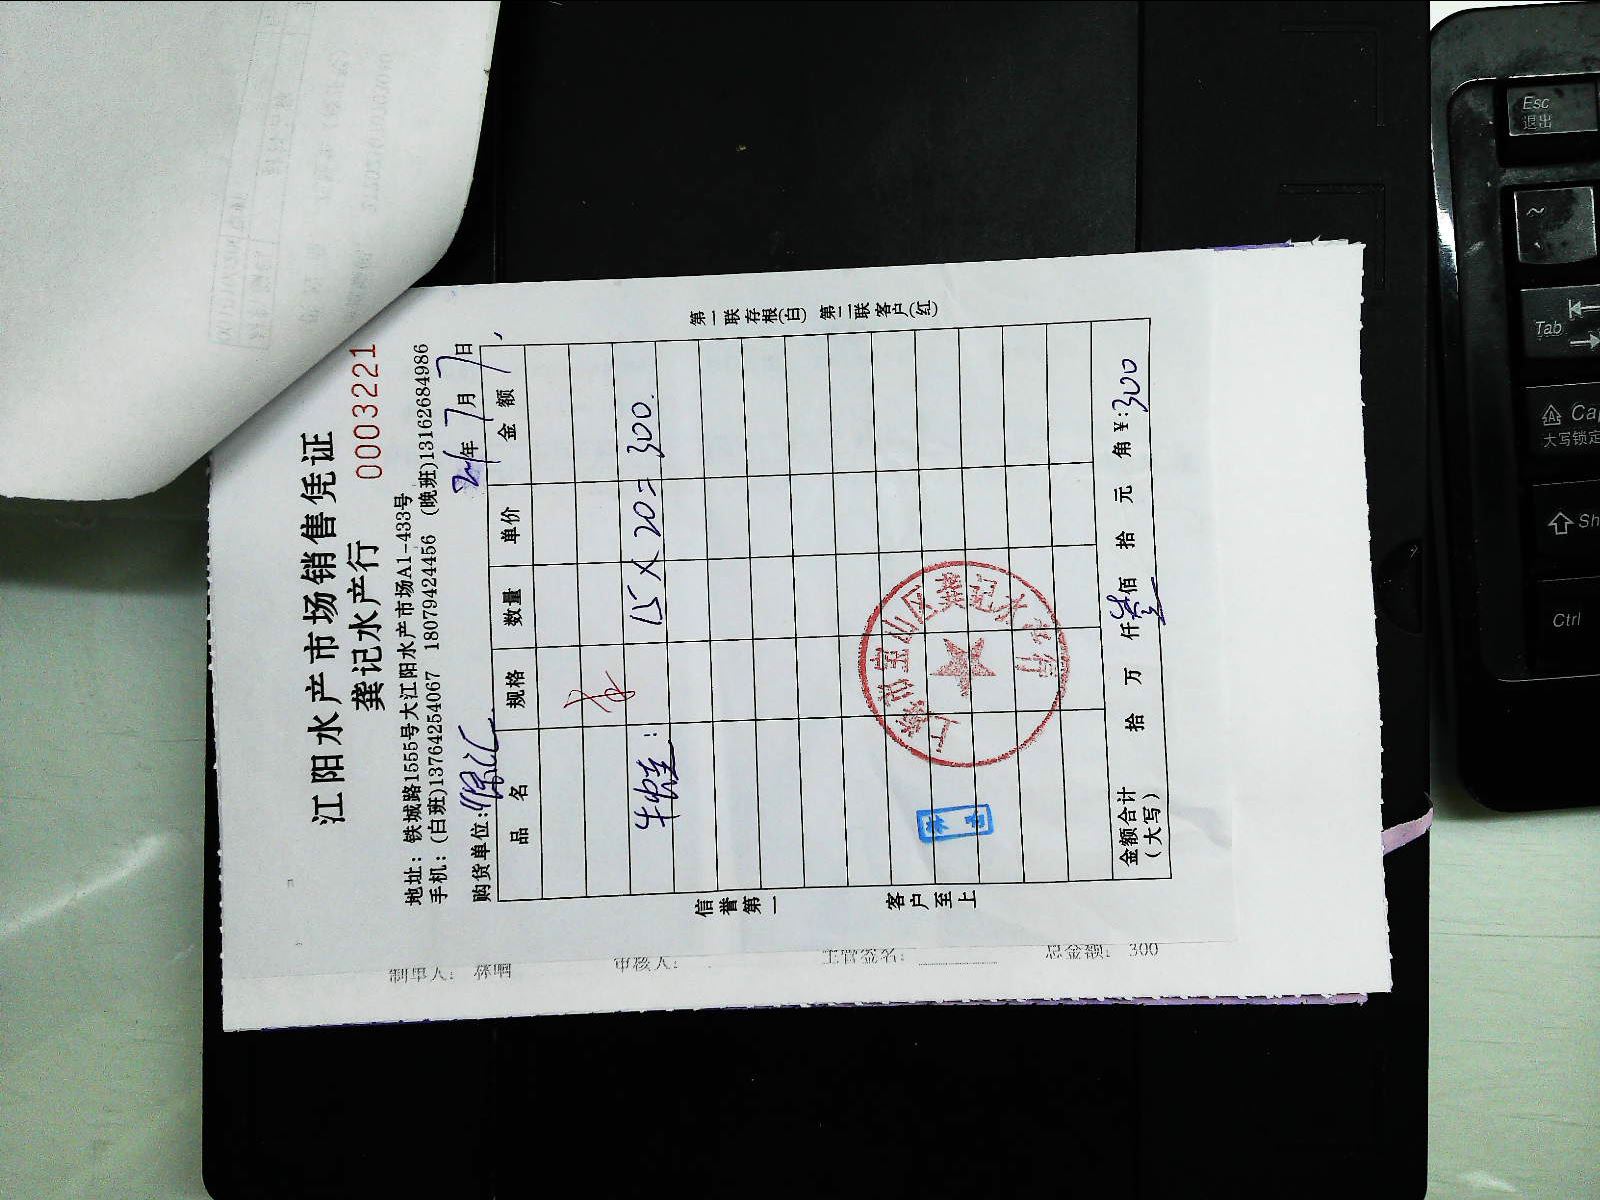 江阳水产市场销售凭证
龚记水产行 0003221
地址：铁城路1555号大江阳水产市场A1-433号
手机：(白班)13764254067 18079424456 (晚班)13162684986
购货单位： 年7月7日
品名 规格 数量 单价 金额
牛蛙： 15×20=300.
金额合计（大写） 拾 万 仟叁佰 拾 元 角 ¥：300
信誉第一 客户至上
第一联存根(白) 第二联客户(红)
上海市宝山区龚记水产行
制单人：
审核人：
主管签名：
总金额： 300
Esc
退出
~
Tab
Cap
大写锁定
Sh
Ctrl